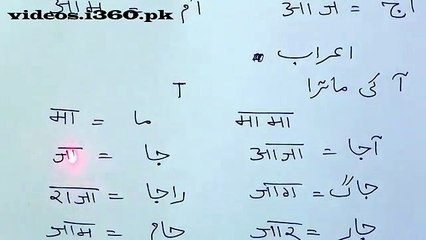 आम = آم आज = آج
videos.i360.pk
اعراب
آ کی ماترا
ा
मा = ما मामा
जा = جا आजा = آجا
राजा = راجا जाग = جاگ
जाम = جام जार = جار